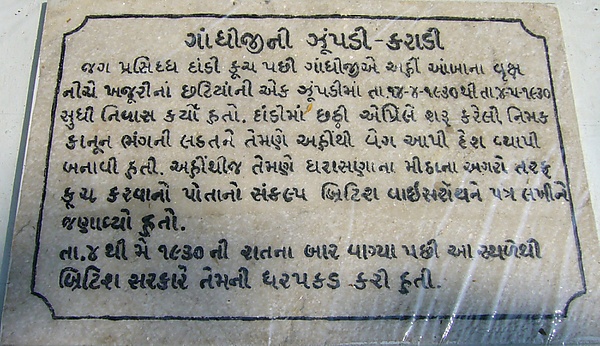 ગાંધીજીની ઝૂંપડી-કરાડી
જગ પ્રસિધ્ધ દાંડી કૂચ પછી ગાંધીજીએ અહીં આંબાના વૃક્ષ
નીચે ખજૂરીનાં છટિયાંની એક ઝૂંપડીમાં તા.૧૪-૪-૧૯૩૦થી તા.૪-૫-૧૯૩૦
સુધી નિવાસ કર્યો હતો. દાંડીમાં છઠ્ઠી એપ્રિલે શરૂ કરેલી નિમક
કાનૂન ભંગની લડતને તેમણે અહીંથી વેગ આપી દેશ વ્યાપી
બનાવી હતી. અહીંથીજ તેમણે ધારાસણાના મીઠાના અગરો તરફ
કૂચ કરવાનો પોતાનો સંકલ્પ બ્રિટિશ વાઇસરોયને પત્ર લખીને
જણાવ્યો હતો.
તા.૪ થી મે ૧૯૩૦ ની રાતના બાર વાગ્યા પછી આ સ્થળેથી
બ્રિટિશ સરકારે તેમની ધરપકડ કરી હતી.